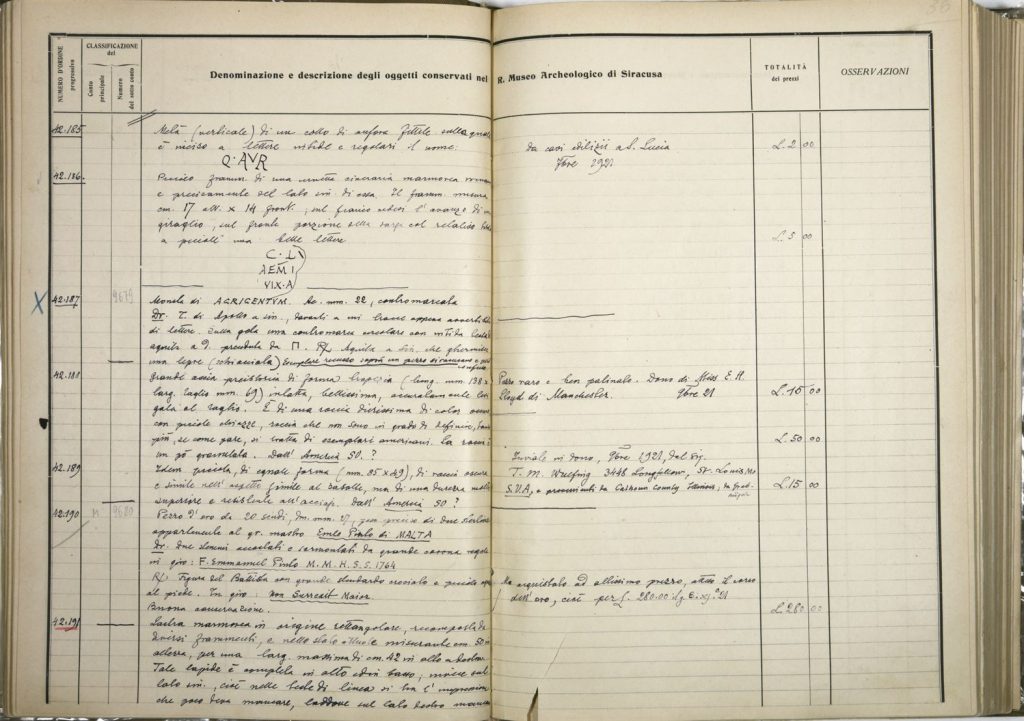 36
NUMERO D'ORDINE progressivo
CLASSIFICAZIONE del
Conto principale
Numero del sotto conto
Denominazione e descrizione degli oggetti conservati nel R. Museo Archeologico di Siracusa
TOTALITÀ dei prezzi
OSSERVAZIONI
42.185
Metà (verticale) di un collo di anfora fittile sulla quale
è inciso a lettere nitide e regolari il nome:
Q·AVR
da cavi edilizii a S. Lucia
7bre 1921
L. 2 00
42.186.
Piccolo framm. di una urnetta cineraria marmorea romana
e precisamente del lato sin. di essa. Il framm. misura
cm. 17 alt. x 14 front.; sul fianco vedesi l'avanzo di un
, sul fronte porzione della targa col relativo
a piccole belle lettere
C·L
AEMI
VIX·A
L. 5 00
X 42.187
9679
Moneta di AGRIGENTVM. Ae. mm. 22, contromarcata
Dr. T. di Apollo a sin., davanti a cui tracce appena avvertibili
di lettere. Sulla gola una contromarca circolare con nitida testa
aquila a d. preceduta da Π. R/ Aquila a sin. che ghermisce
una lepre (schiacciata) Esemplare
Pezzo raro e ben patinato. Dono di Miss E. H.
Lloyd di Manchester. 7bre 21
L. 15 00
42.188
Grande accia preistorica di forma (lung. mm. 138 x
larg. taglio mm. 69) intatta, bellissima, accuratamente
al taglio. È di una roccia durissima di color oscuro
con piccole chiazze, roccia che non sono in grado di definire,
più, se come pare, si tratta di esemplari americani. La roccia è
un pò granulata. Dall' America SO. ?
Inviate in dono, 7bre 1921, dal Sig.
T. M. Wuelfing 3448 Longfellow, St. Louis Mo
S.U.A, e provenienti da Calhoun County Illinois,
L. 50 00
42.189
Idem piccola, di eguale forma (mm. 85 x 49), di roccia oscura
e simile nell' aspetto simile al basalte, ma di una durezza molto
superiore e resistente all'acciaio. Dall' America SO ?
L. 15 00
42.190
M.
9680
Pezzo d'oro da 20 scudi, Dm. mm. 29,
appartenente al gr. mastro Emle Pinto di MALTA
Dr. Due stemmi accostati e sormontati da grande corona
in giro: F. Emmanuel Pinto M. M. H. S. S. 1764
R/: Figura del Battista con grande stendardo crociato e piccolo
al piede. In giro: Non Surrexit Maior.
Buona conservazione.
Ho acquistato ad altissimo prezzo, atteso il corso
dell'oro, cioè per L. 280.00
L. 280 00
42.191
Lastra marmorea in origine rettangolare, recomposta di
diversi frammenti, e nello stato attuale misurante cm. 50 in
altezza, per una larg. massima di cm. 42 in alto a destra.
Tale lapide è completa in alto ed in basso; invece sul
lato sin., cioè nelle teste di linea si ha l'impressione
che poco deva mancare, laddove sul lato destro